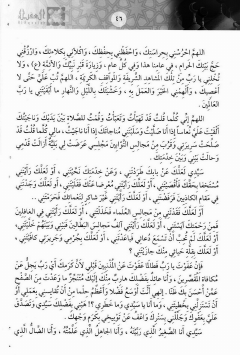 ٤٦
اللهم احرسني بحراستك، واحفظني بحفظك، واكلأني بكلاءتك، وارزقني
حج بيتك الحرام، في عامنا هذا وفي كل عام، وزيارة قبر نبيك والأئمة (ع)، ولا
تخلني يا رب من تلك المشاهد الشريفة والمواقف الكريمة، اللهم تب علي حتى لا
أعصيك، وألهمني الخير والعمل به، وخشيتك بالليل والنهار ما أبقيتني يا رب
العالمين.
اللهم إني كلما قلت قد تهيأت وتعبأت وقمت للصلاة بين يديك وناجيتك
ألقيت علي نعاسا إذا أنا صليت وسلبتني مناجاتك إذا أنا ناجيت، مالي كلما قلت قد
صلحت سريرتي، وقرب من مجالس التوابين مجلسي عرضت لي بلية أزالت قدمي
وحالت بيني وبين خدمتك.
سيدي لعلك عن بابك طردتني، وعن خدمتك نحيتني، أو لعلك رأيتني
مستخفا بحقك فأقصيتني، أو لعلك رأيتني معرضا عنك فقليتني، أو لعلك وجدتني
في مقام الكاذبين فرفضتني، أو لعلك رأيتني غير شاكر لنعمائك فحرمتني،
أو لعلك فقدتني من مجالس العلماء فخذلتني، أو لعلك رأيتني في الغافلين
فمن رحمتك آيستني، أو لعلك رأيتني آلف مجالس البطالين فبيني وبينهم خليتني،
أو لعلك لم تحب أن تسمع دعائي فباعدتني، أو لعلك بجرمي وجريرتي كافيتني،
أو لعلك بقلة حيائي منك جازيتني؟
فإن عفوت يا رب فطالما عفوت عن المذنبين قبلي لأن كرمك أي رب يجل عن
مكافاة المقصرين، وأنا عائذ بفضلك هارب منك إليك، متنجز ما وعدت من الصفح
عمن أحسن بك ظنا. إلهي أنت أوسع فضلا وأعظم حلما من أن تقايسني بعملي أو
أن تستزلني بخطيئتي، وما أنا يا سيدي وما خطري؟! هبني بفضلك سيدي وتصدق
علي بعفوك وجللني بسترك واعف عن توبيخي بكرم وجهك.
سيدي أنا الصغير الذي ربيته، وأنا الجاهل الذي علمته، وأنا الضال الذي